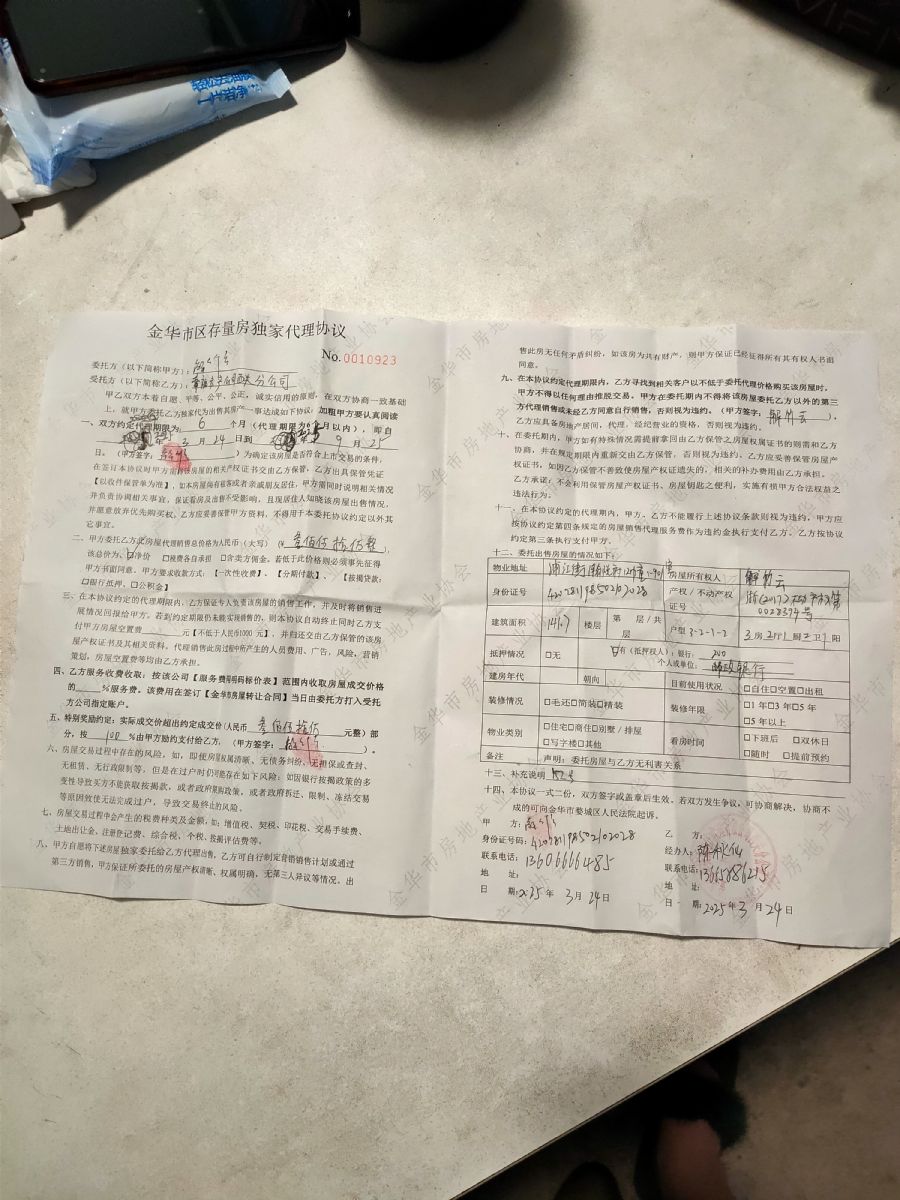 金华市区存量房独家代理协议
No.0010923
委托方（以下简称甲方）：
受托方（以下简称乙方）： 分公司
甲乙双方本着自愿、平等、公平、公正、诚实信用的原则，在双方协商一致基础
上，就甲方委托乙方独家代为出售其房产一事达成如下协议，加粗甲方要认真阅读
一、双方约定代理期限为： 6 个月（代理期限为 个月以内），即自
3 月 24 日到 9 月 25
日。（甲方签字： ）为确定该房屋是否符合上市交易的条件，
在签订本协议时甲方需将该房屋的相关产权证书交由乙方保管，乙方出具保管凭证
【以收件保管单为准】，如本房屋尚有租客或者亲戚朋友居住，甲方需同时说明相关情况
并负责协调相关事宜，保证看房及出售不受影响，且现居住人知晓该房屋出售情况，
并愿意放弃优先购买权。乙方应妥善保管甲方资料，不得用于本委托协议约定以外其
它事宜。
二、甲方委托乙方此房屋代理销售总价格为人民币（大写）（ 叁佰伍拾伍整 ），
该总价为：☑净价 □税费各自承担 □含卖方佣金。若低于此价格则必须事先征得
甲方书面同意。甲方要求收款方式：【一次性收费】、【分期付款】、 【按揭贷款：
□银行抵押、□公积金】
三、在本协议约定的代理期限内，乙方保证专人负责该房屋的销售工作，并及时将销售进
展情况回报给甲方。若到约定期限仍未能实现销售的，则本协议自动终止同时乙方支
付甲方房屋空置费 元【不低于人民币1000 元】，并归还交由乙方保管的该房
屋产权证书及其相关资料。代理销售此房过程中所产生的人员费用、广告、风险、营销
策划，房屋空置费等均由乙方承担。
四、乙方服务收费收取：按该公司【服务费明码标价表】范围内收取房屋成交价格
的 %服务费。该费用在签订【金华市房屋转让合同】当日由委托方打入受托
方公司指定账户。
五、特别奖励约定：实际成交价超出约定成交价（人民币 叁佰伍拾伍 元整）部
分，按 100 %由甲方励约支付给乙方。（甲方签字： ）。
六、房屋交易过程中存在的风险，如，即便房屋权属清晰、无债务纠纷、无担保或查封、
无租赁、无行政限制等，但是在过户时仍可能存在如下风险：如因银行按揭政策的多
变性导致买方不能获取按揭款，或者政府限购政策，或者政府拆迁、限制、冻结交易
等原因致使无法完成过户，导致交易终止的风险。
七、房屋交易过程中会产生的税费种类及金额，如：增值税、契税、印花税、交易手续费、
土地出让金、注册登记费、综合税、个税、按揭评估费等。
八、甲方自愿将下述房屋独家委托给乙方代理出售，乙方可自行制定营销销售计划或通过
第三方销售，甲方保证所委托的房屋产权清晰、权属明确，无第三人异议等情况。出
售此房无任何矛盾纠纷，如该房为共有财产，则甲方保证已经征得所有其有权人书面
同意。
九、在本协议约定代理期限内，乙方寻找到相关客户以不低于委托代理价格购买该房屋时，
甲方不得以任何理由推脱交易。甲方在委托期内不得将该房屋委托乙方以外的第三
方代理销售或未经乙方同意自行销售，否则视为违约。（甲方签字： 解竹云 ）。
乙方应具备房地产居间、代理、经纪营业的资格，否则视为违约。
十、在委托期内，甲方如有特殊情况需提前拿回由乙方保管之房屋权属证书的则需和乙方
协商，并在规定期限内重新交由乙方保管，否则视为违约。乙方应妥善保管房屋产
权证书，如因乙方保管不善致使房屋产权证遗失的，相关的补办费用由乙方承担。
乙方承诺：不会利用保管房屋产权证书、房屋钥匙之便利，实施有损甲方合法权益之
违法行为。
十一、在本协议约定的代理期内，甲方、乙方不能履行上述协议条款则视为违约，甲方应
按协议约定第四条规定的房屋销售代理服务作为违约金执行支付乙方。乙方按协议
约定第三条执行支付甲方。
十二、委托出售房屋的情况如下：
物业地址 房屋所有权人 解竹云
身份证号 420281198502102028 产权/不动产权证号 浙(2017) 0028374号
建筑面积 141.7 楼层 第 层/共 层 户型 3-2-1-2 3房2厅1厨2卫1阳
抵押情况 □无 ☑有（抵押权人）：银行： 200
个人或单位： 邮政银行
建房年代 朝向 目前使用状况 □自住□空置□出租
装修情况 □毛还□简装□精装 装修年限 □1年□3年□5年
□5年以上
物业类别 □住宅□商住□别墅/排屋
□写字楼□其他 看房时间 □下班后 □双休日
□随时 □提前预约
备注 声明：委托房屋与乙方无利害关系
十三、补充说明
十四、本协议一式二份，双方签字或盖章后生效。若双方发生争议，可协商解决，协商不
成的可向金华市婺城区人民法院起诉。
甲 方： 乙 方：
身份证号码：420281198502102028 经办人：
联系电话：13606666485 联系电话：13665686215
地 址： 地 址：
日 期：2025年 3月24日 日 期：2025年3月24日